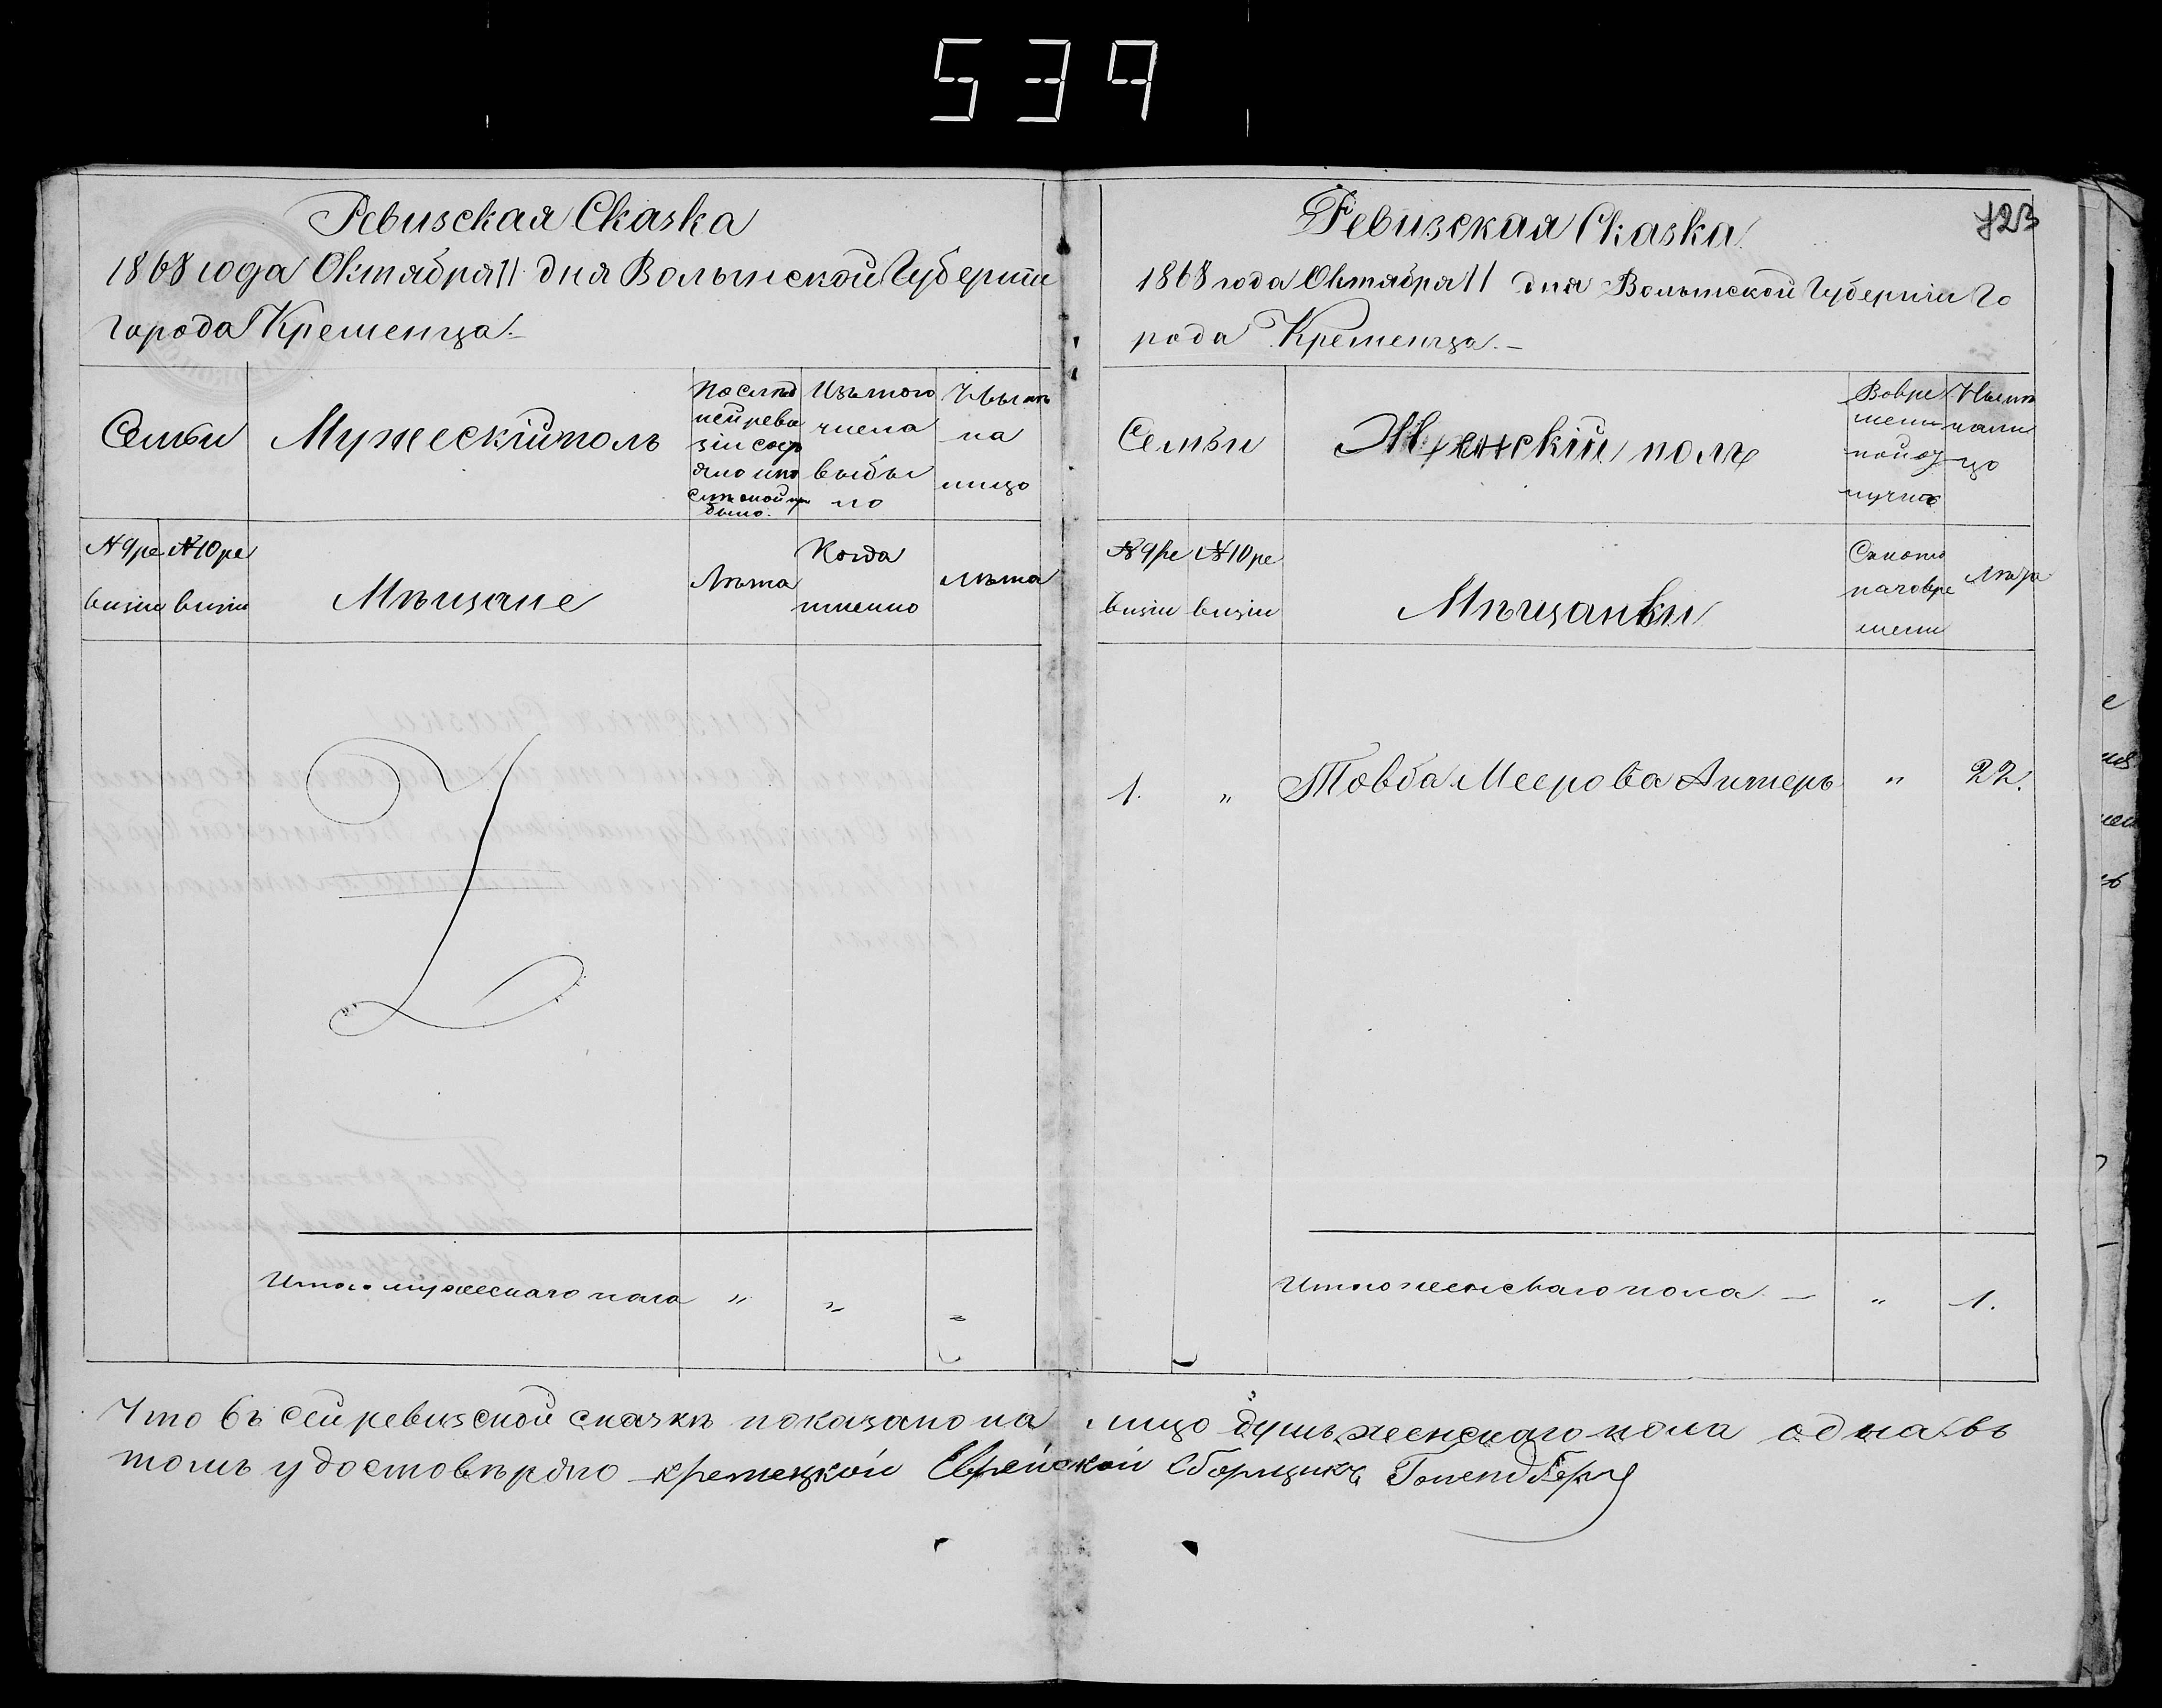 539
Ревизская Сказка
1868 года Октября 11 дня Волынской Губерніи
города Кременца.
Семьи
Мужескій полъ
По послѣд
ней реви
зіи состо
яло и по
слѣ оной при
было.
Изъ того
числа
выбы
ло
Нынѣ
на
лицо
№ 9 ре
визіи
№ 10 ре
визіи
Мѣщане
Лѣта
Когда
именно
Лѣта
Итого мужескаго пола " " "
Ревизская Сказка
723
1868 года Октября 11 дня Волынской Губерніи Го
рода Кременца.
Семьи
Женскій полъ
Во вре
мен
ной от
лучкѣ
Нынѣ
на ли
цо
№ 9 ре
визіи
№ 10 ре
визіи
Мѣщанки
Съ кото
раго вре
мени
Лѣта
1. " Товба Меерова Битеръ " 22.
Итого женскаго пола — " 1.
Что въ сей ревизской сказкѣ показано на лицо душъ женскаго пола одна въ
томъ удостовѣряю кремецкой Еврейской Сборщикъ